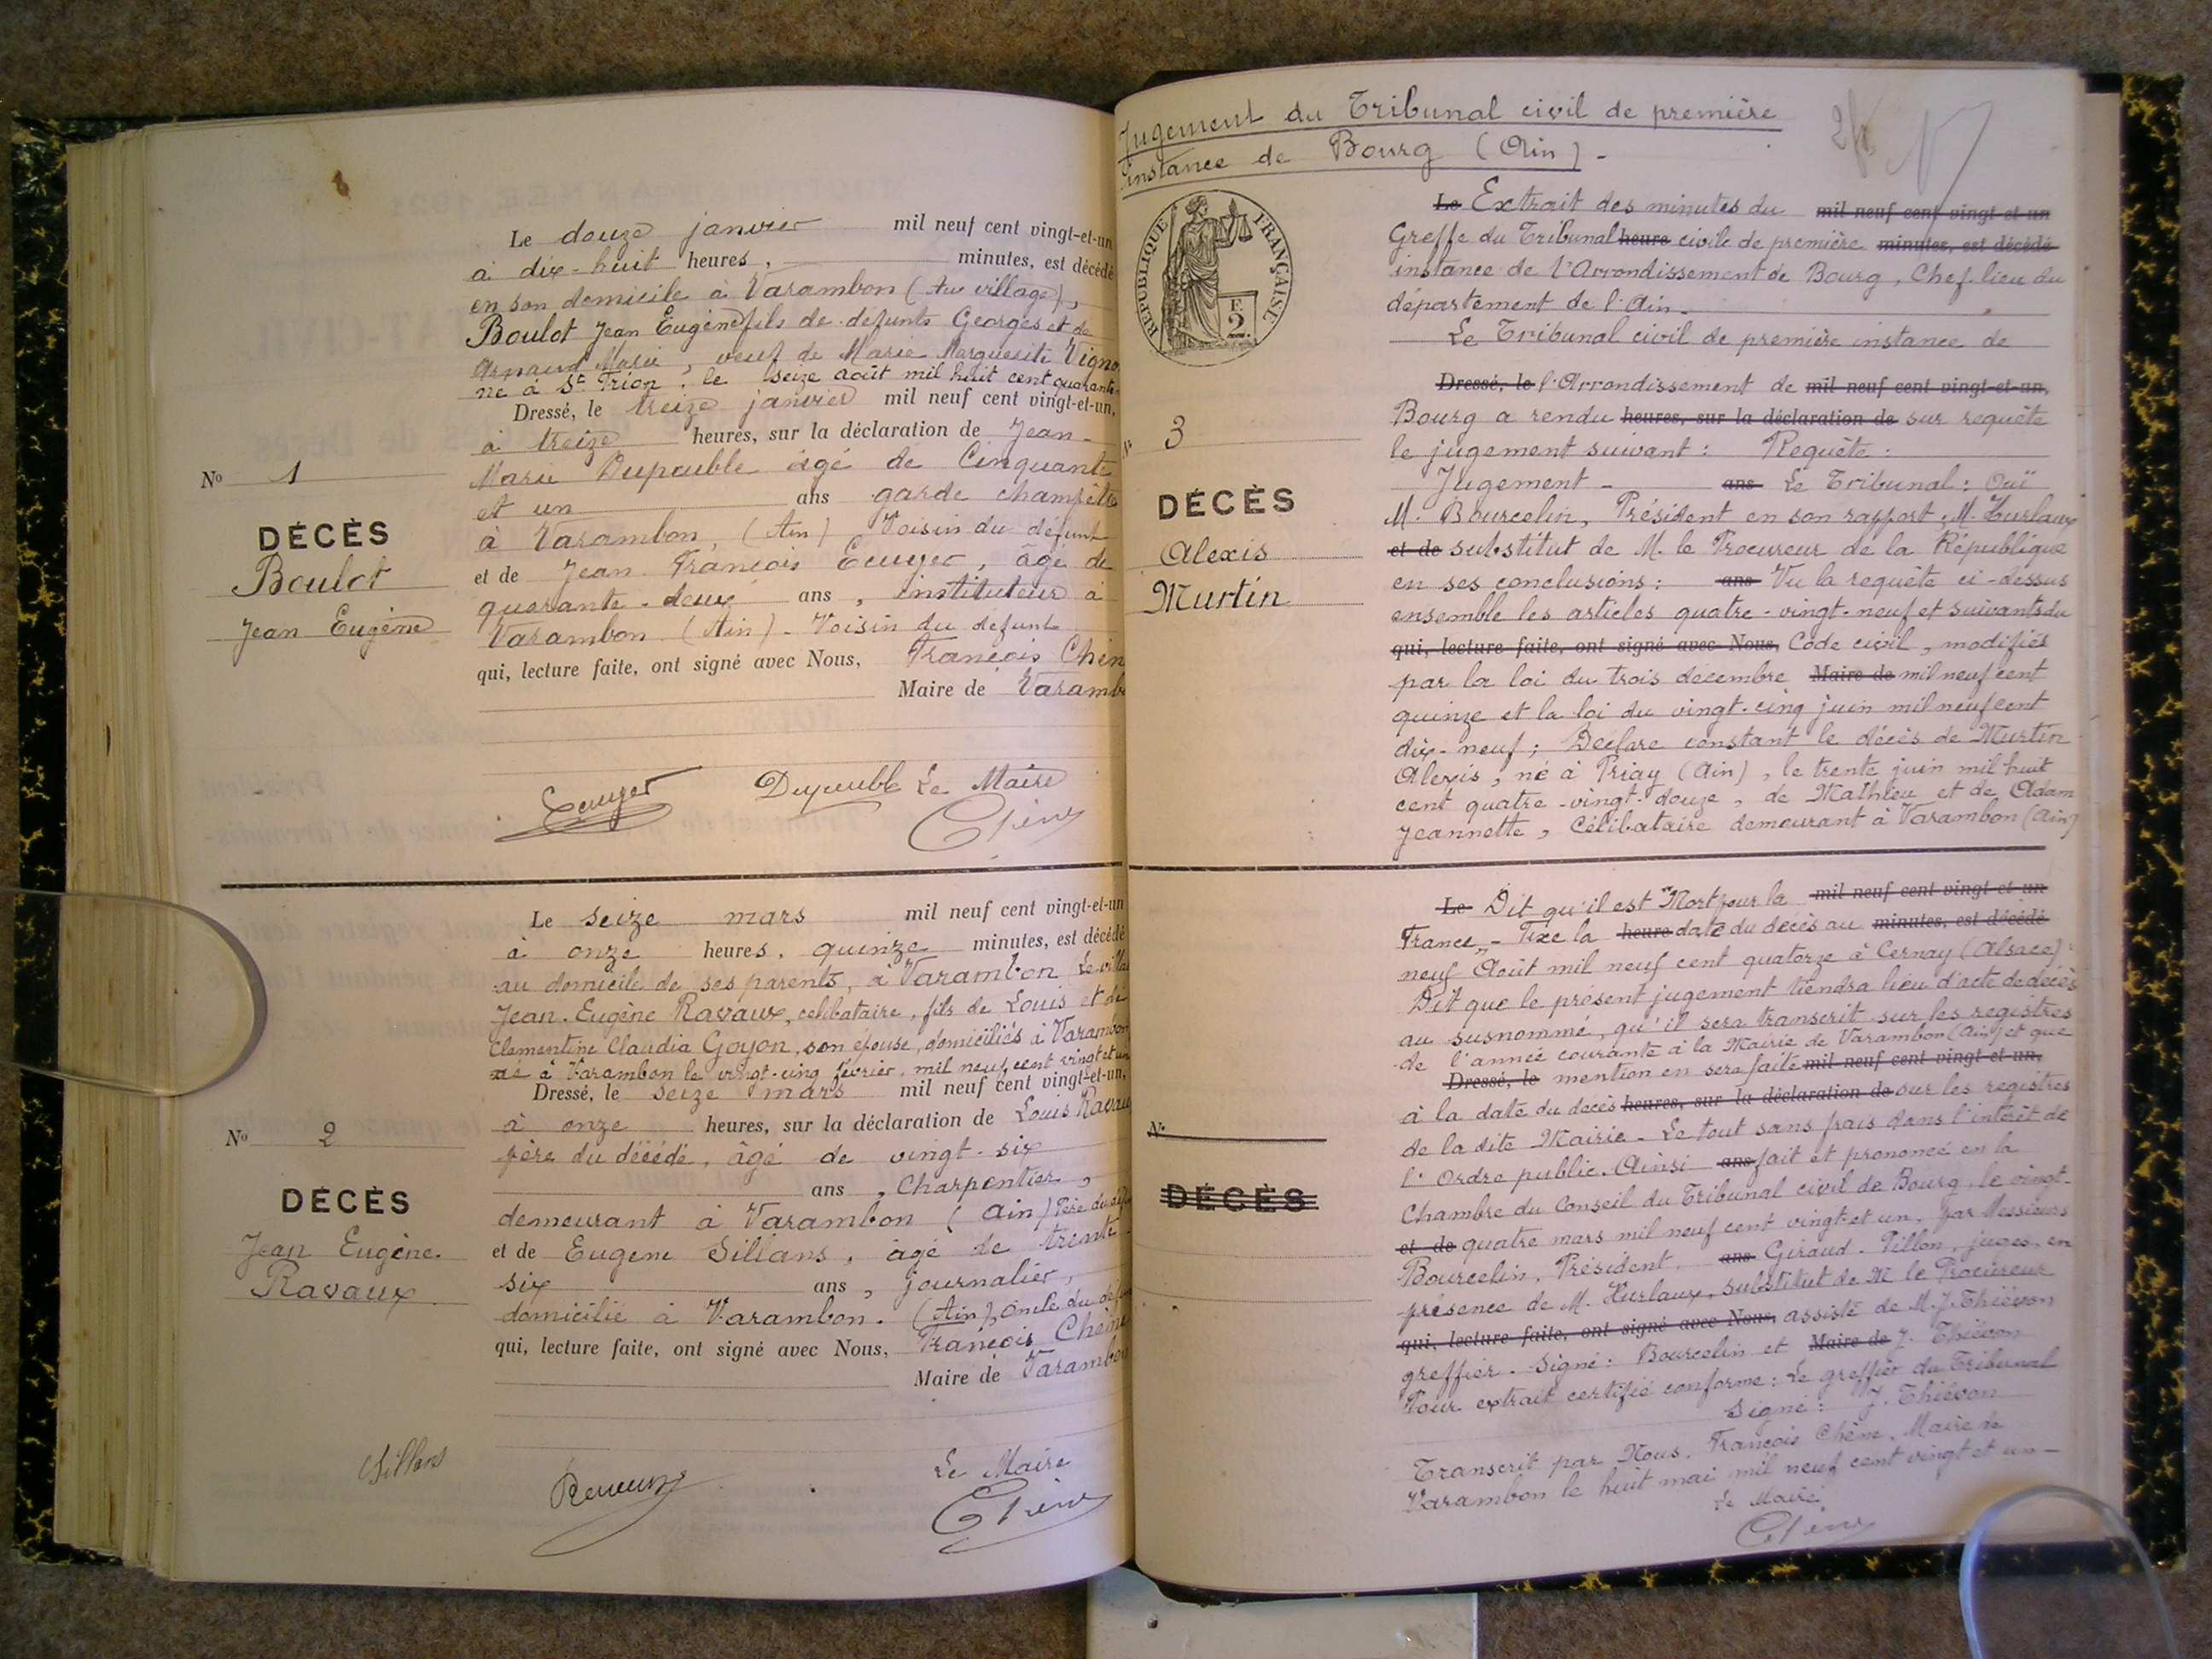 Le douze janvier mil neuf cent vingt-et-un
à dix-huit heures, minutes, est décédé
en son domicile à Varambon (Au village),
Boulot Jean Eugène fils de defunts Georges et de
Arnaud Marie, veuf de Marie Marguerite
né à St Trion, le seize août mil huit cent quarante-
Dressé, le treize janvier mil neuf cent vingt-et-un,
à treize heures, sur la déclaration de Jean-
Marie Dupeuble âgé de Cinquante
et un ans garde champêtre
à Varambon, (Ain) Voisin du défunt
et de Jean François Ecuyer, âgé de
quarante-deux ans, instituteur à
Varambon (Ain) - Voisin du defunt
qui, lecture faite, ont signé avec Nous, François Chên
Maire de Varamb
No 1
DÉCÈS
Boulot
Jean Eugène
Ecuyer Dupeuble Le Maire
Chêne
Le seize mars mil neuf cent vingt-et-un
à onze heures, quinze minutes, est décédé
au domicile de ses parents, à Varambon (Le villa
Jean-Eugène Ravaux, celibataire, fils de Louis et de
Clementine Claudia Goyon, son épouse, domiciliés à Varambon
né à Varambon le vingt-cinq février, mil neuf cent vingt et un
Dressé, le seize mars mil neuf cent vingt-et-un,
à onze heures, sur la déclaration de Louis Ravaux
père du décédé, âgé de vingt-six
ans, Charpentier,
demeurant à Varambon (Ain) Père du
et de Eugene Sillans, âgé de trente-
six ans, journalier,
domicilié à Varambon. (Ain), oncle du
qui, lecture faite, ont signé avec Nous, François Chêne
Maire de Varambon
No 2
DÉCÈS
Jean Eugène
Ravaux
Sillans
Ravaux
Le Maire
Chêne
Jugement du Tribunal civil de première
instance de Bourg (Ain) -
RÉPUBLIQUE FRANÇAISE
F.
2.
N° 3
DÉCÈS
Alexis
Murtin
Le Extrait des minutes du mil neuf cent vingt et un
Greffe du Tribunal heure civile de première minutes, est décédé
instance de l'Arrondissement de Bourg, Chef-lieu du
département de l'Ain.
Le Tribunal civil de première instance de
Dressé, le l'Arrondissement de mil neuf cent vingt-et-un,
Bourg a rendu heures, sur la déclaration de sur requête
le jugement suivant : Requête :
Jugement - ans Le Tribunal : Ouï
M. Bourcelin, Président en son rapport ; M. Hurlaux
et de substitut de M. le Procureur de la République
en ses conclusions : ans Vu la requête ci-dessus
ensemble les articles quatre-vingt-neuf et suivants du
qui, lecture faite, ont signé avec Nous, Code civil, modifiés
par la loi du trois décembre Maire de mil neuf cent
quinze et la loi du vingt-cinq juin mil neuf cent
dix-neuf ; Déclare constant le décès de Murtin
Alexis, né à Priay (Ain), le trente juin mil huit
cent quatre-vingt-douze, de Mathieu et de Adam
Jeannette, Célibataire demeurant à Varambon (Ain)
Le Dit qu'il est "Mort pour la mil neuf cent vingt et un
France" - Fixe la heure date du décès au minutes, est décédé
neuf Août mil neuf cent quatorze à Cernay (Alsace)
Dit que le présent jugement tiendra lieu d'acte de décès
au susnommé, qu'il sera transcrit sur les registres
de l'année courante à la Mairie de Varambon (Ain) et que
Dressé, le mention en sera faite mil neuf cent vingt-et-un,
à la date du décès heures, sur la déclaration de sur les registres
de la dite Mairie - Le tout sans frais dans l'intérêt de
l'Ordre public. Ainsi ans fait et prononcé en la
Chambre du Conseil du Tribunal civil de Bourg, le vingt-
et de quatre mars mil neuf cent vingt et un, par Messieurs
Bourcelin, Président, ans Giraud - Pillon, juges, en
présence de M. Hurlaux, substitut de M. le Procureur
qui, lecture faite, ont signé avec Nous, assisté de M. J. Thiévon
greffier. Signé : Bourcelin et Maire de J. Thiévon
Pour extrait certifié conforme : Le greffier du Tribunal
Signé : J. Thiévon
Transcrit par Nous, François Chêne, Maire de
Varambon le huit mai mil neuf cent vingt et un -
Le Maire
Chêne
N°
DÉCÈS